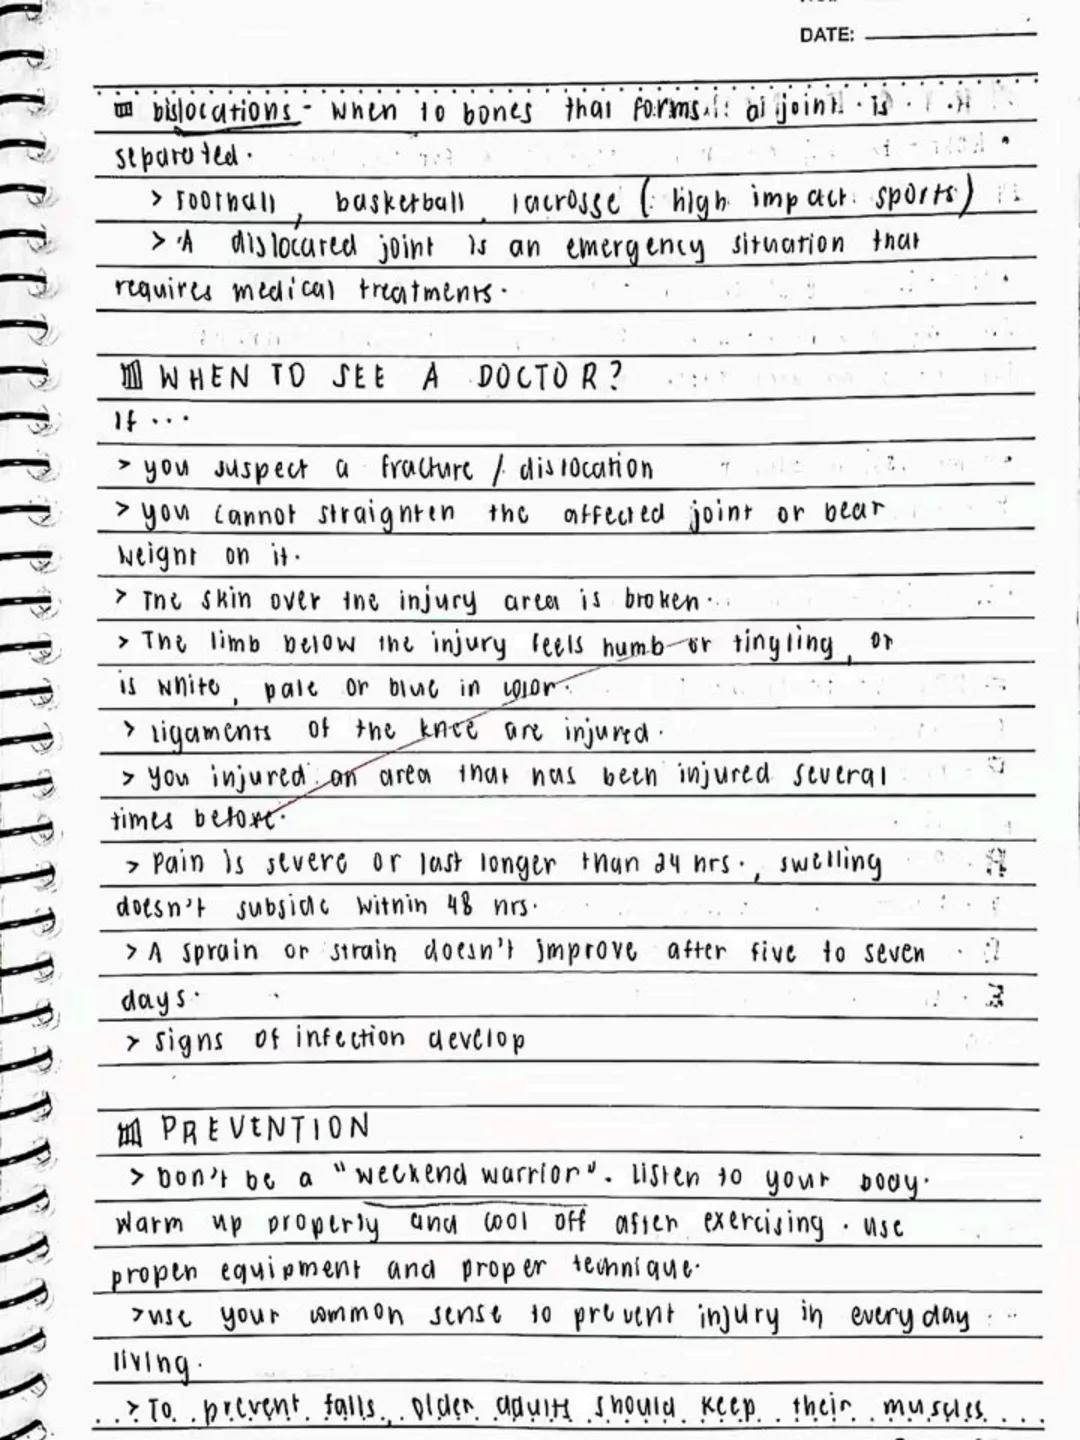 DATE:
Dislocations - When to bones that forms a joint is
separated.
> Football, basketball, lacrosse (high impact sports)
> A dislocated joint is an emergency situation that
requires medical treatments.
WHEN TO SEE A DOCTOR?
If ...
> you suspect a fracture / dislocation
> you cannot straighten the affected joint or bear
weight on it.
> The skin over the injury area is broken.
> The limb below the injury feels numb or tingling, or
is white, pale or blue in color.
> ligaments of the knee are injured.
> You injured an area that has been injured several
times before.
> Pain is severe or last longer than 24 hrs., swelling
doesn't subside within 48 hrs.
> A sprain or strain doesn't improve after five to seven
days.
> signs of infection develop
PREVENTION
> Don't be a "weekend warrior". Listen to your body.
Warm up properly and cool off after exercising. use
proper equipment and proper technique.
> use your common sense to prevent injury in everyday
living.
> To prevent falls, older adults should keep their muscles